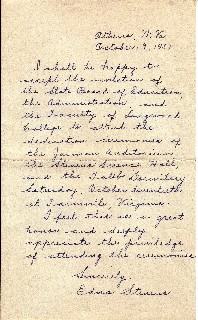 Athens, W. Va.
October 9, 1951
I shall be happy to
accept the invitation of
the State Board of Education,
the Administration and
the Faculty of Longwood
College to attend the
dedication ceremonies of
the Jarman Auditorium,
the Stevens Science Hall,
and the Tabb Dormitory
Saturday, October twentieth,
at Farmville, Virginia.
I feel this is a great
honor and deeply
appreciate the privilege
of attending the ceremonies.
Sincerely,
Edna